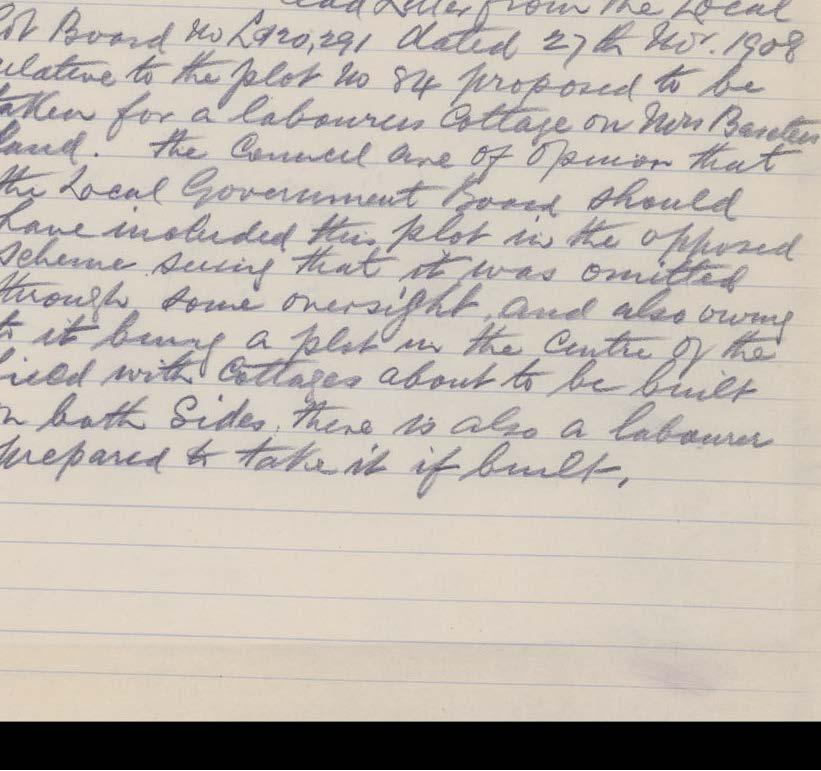 ead Letter from the Local
ot Board No L920,291 dated 27th Nov. 1908
elative to the plot No 84 proposed to be
taken for a labourers Cottage on Mrs
land. The Council are of opinion that
the Local Government Board should
have included this plot in the opposed
scheme seeing that it was omitted
through some oversight, and also owing
to it being a plot in the Centre of the
field with Cottages about to be built
on both Sides. there is also a labourer
prepared to take it if built.